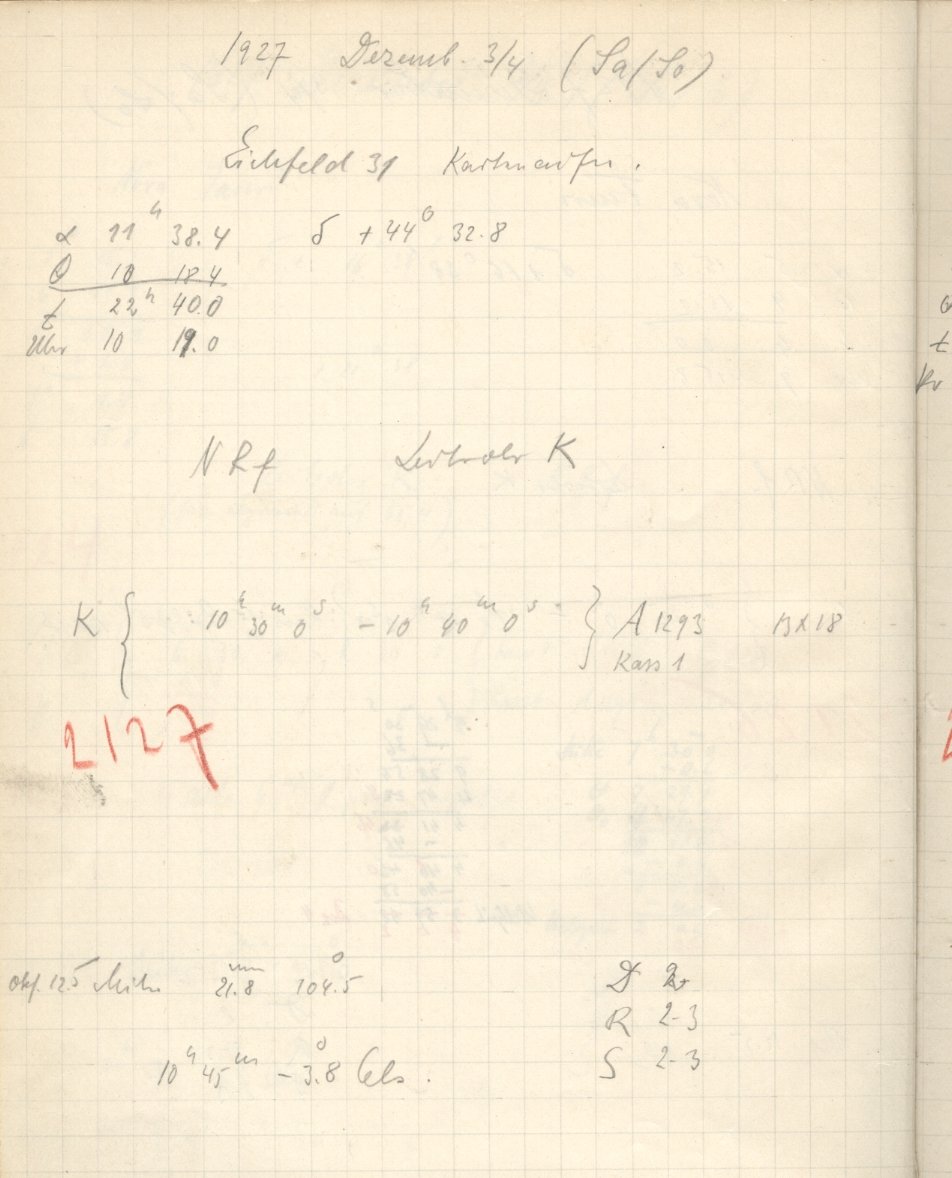 1927 Dezemb. 3/4 (Sa/So)
Eichfeld 31 Kartenaufn.
α 11h 38.4 δ +44° 32.8
Θ 10 18.4
t 22h 40.0
Uhr 10 19.0
NRf Leitrohr K
K { 10h 30m 0s – 10h 40m 0s } A 1293 B X 18
Kass 1
2127
Okf. 125 Mikr 21.8mm 104.5°
D 2
R 2-3
S 2-3
10h 45m – 3.8° Cels.